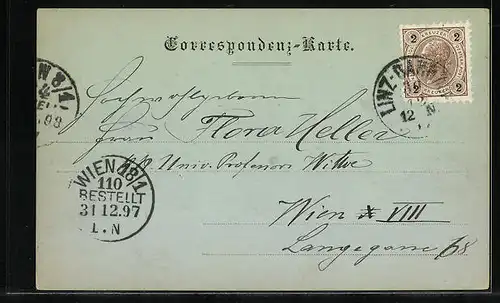 Correspondenz-Karte.
2 2
2 2
N 8/1
99
LINZ-BAH
12 N
Hochwohlgeboren
Frau Flora Heller
Univ. Professors Witwe
WIEN 18/1
110
BESTELLT
31 12.97
1.N
Wien VIII
Langegasse 68